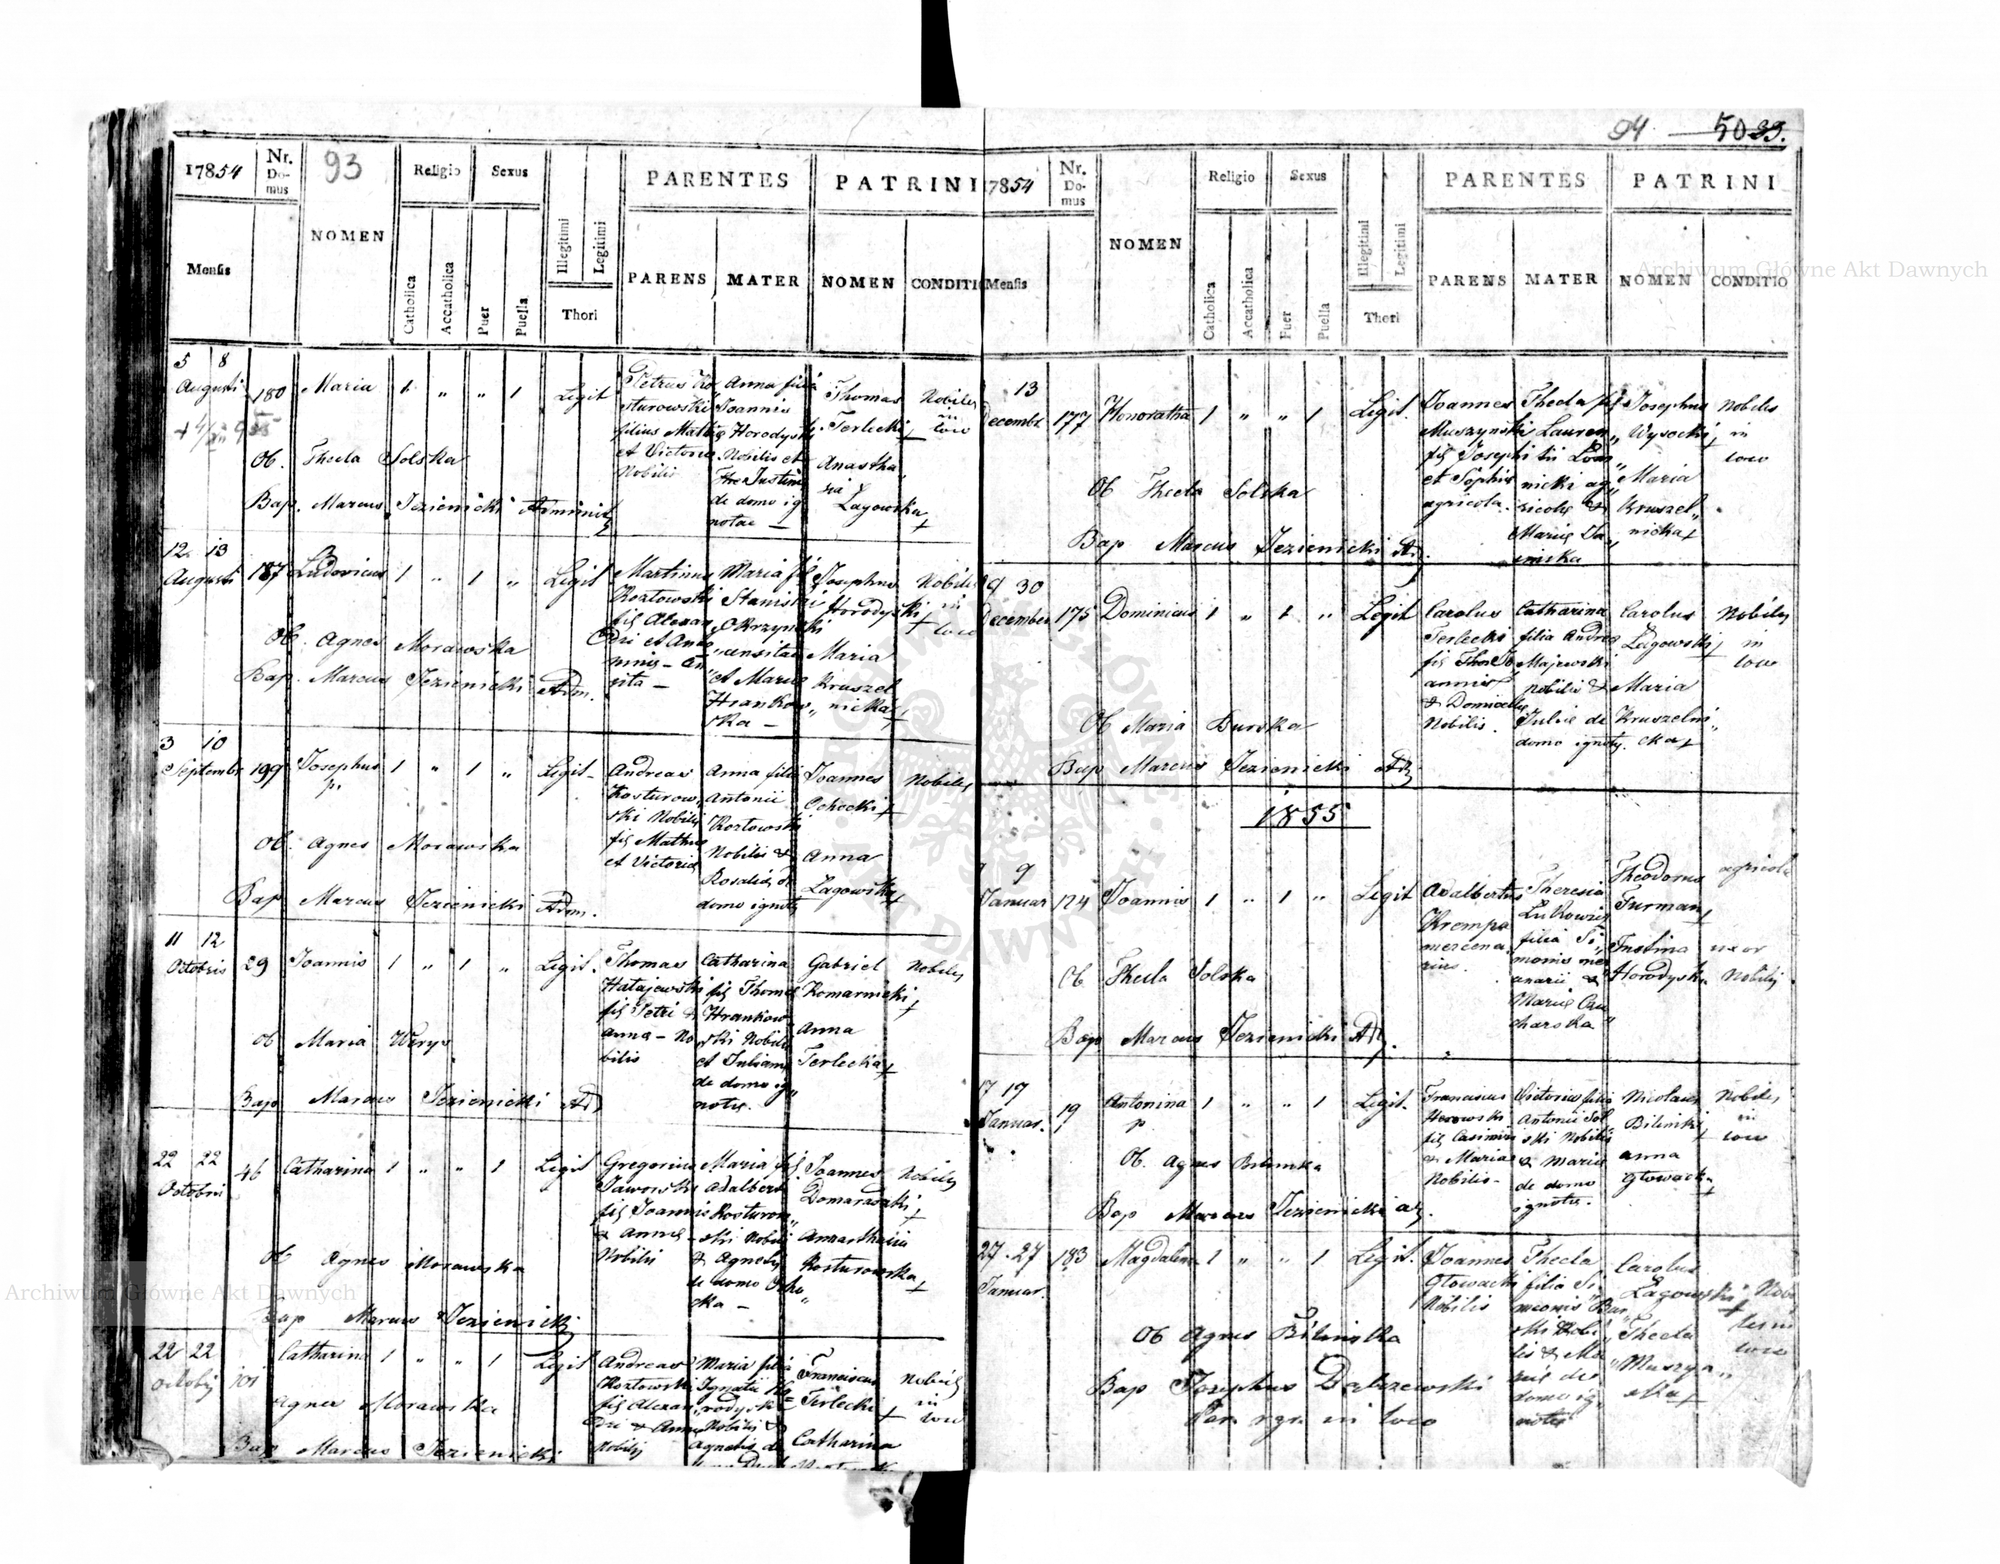 17854
Nr. Domus
93
NOMEN
Religio
Sexus
PARENTES
PATRINI
Mensis
Catholica
Accatholica
Puer
Puella
Illegitimi
Legitimi
Thori
PARENS
MATER
NOMEN
CONDITI
5 8
Augusti
180
Maria
1 " " 1
Legit
Petrus Ko
sturowski
filius Mathe
et Victoria
Nobilis
Anna filia
Joannis
Horodyski
Nobilis et
de domo ig
notae —
Thomas
Terlecki +
Anastha
sia
Lagowska +
Nobiles
in
loco
Ob. Thecla Solska
Bap. Marcus Jezienicki
12 13
Augusti
187
Ludovicus
1 " 1 "
Legit
Martinus
Kozłowski
fil Alexan
Maria fil
Stanislai
Okrzynski
et Mariae
Hrankow
ska —
Josephus
Horodyski +
Maria
Kruszel
nicka +
Nobiles
in
loco
Ob. Agnes Morawska
Bap. Marcus Jezienicki Adm.
3 10
Septembr
199
Josephus
p.
1 " 1 "
Legit
Andreas
Kosturow
ski Nobilis
fil Mathei
et Victoria
Anna filia
Antonii
Kozłowski
Nobilis &
Rosaliae de
domo ignotae
Joannes
Ochocki +
Anna
Lagowska +
Nobiles
Ob. Agnes Morawska
Bap Marcus Jezienicki Adm.
11 12
Octobris
29
Joannis
1 " 1 "
Legit.
Thomas
Hatajewski
fil Petri &
Anna – No
bilis
Catharina
fil Thomae
Hrankow
ski Nobilis
et Juliana
de domo ig
notae.
Gabriel
Komarnicki +
Anna
Terlecka +
Nobiles
Ob Maria Werys
Bap Marcus Jezienicki Ad
22 22
Octobris
46
Catharina
1 " " 1
Legit
Gregorius
Jaworski
fil Joannis
& Anna
Nobilis
Maria fil
Adalberti
Kosturow
ski Nobilis
& Agnetis
de domo Ocho
cka —
Joannes
Domaradzki +
Annasthasia
Kosturowska +
Nobiles
Ob Agnes Morawska
Bap Marcus Jezienicki
22 22
Octobris
101
Catharina
1 " " 1
Legit
Andreas
Kozłowski
fil Alexan
dri & Anna
Nobilis
Maria filia
Ignatii Ho
rodyski
Nobilis &
Agnetis de
Franciscus
Terlecki +
Catharina
Nobiles
in
loco
Agnes Morawska
Bap Marcus Jezienicki
94
50 33.
7854
Nr. Domus
NOMEN
Religio
Sexus
PARENTES
PATRINI
Mensis
Catholica
Accatholica
Puer
Puella
Illegitimi
Legitimi
Thori
PARENS
MATER
NOMEN
CONDITIO
13
Decembr
177
Honoratha
1 " " 1
Legit.
Joannes
Muszynski
fil Josephi
et Sophia
agricola.
Thecla fil
Lauren
tii Łom
nicki ag
ricolae &
Mariae Ja
Josephus
Wysocki +
Maria
Kruszel
nicka +
Nobiles
in
loco
Ob Thecla Solska
Bap Marcus Jezienicki Ad.
9 30
December
175
Dominicus
1 " 1 "
Legit
Carolus
Terlecki
Nobilis.
Catharina
filia Andrea
Majewski
nobilis &
Juliae de
domo ignotae.
Carolus
Lagowski +
Maria
Kruszelni
cka +
Nobiles
in
loco
Ob Maria Burska
Bap Marcus Jezienicki Ad
1855
9
Januar
124
Joannis
1 " 1 "
Legit
Adalbertus
Krempa
mercena
rius.
Theresia
filia Si
monis mer
cenarii &
Mariae Cau
charska
Theodorus
Furman +
Justina
Horodyska
agricola
uxor
Nobilis
Ob Thecla Solska
Bap Marcus Jezienicki Ad.
17 17
Januar.
19
Antonina
p.
1 " " 1
Legit.
Franciscus
fil Casimiri
& Maria
Nobilis –
Victoria filia
Antonii Sol
ski Nobilis
& Mariae
de domo
ignotae.
Nicolaus
Bilinski +
Anna
Głowacka +
Nobiles
in
loco
Ob. Agnes Bilinska
Bap Marcus Jezienicki Ad.
27. 27
Januar.
183
Magdalena
1 " " 1
Legit.
Joannes
Głowacki
Nobilis
Thecla
filia Si
meonis Bur
ski Nobi
lis & Ma
riae de
domo ig
notae
Carolus
Lagowski +
Thecla
Muszyn
ska +
Nobi
les in
loco
Ob Agnes Bilinska
Bap Josephus Dabrzewski
in loco
Archiwum Główne Akt Dawnych
Archiwum Główne Akt Dawnych
ARCHIWUM GŁÓWNE AKT DAWNYCH